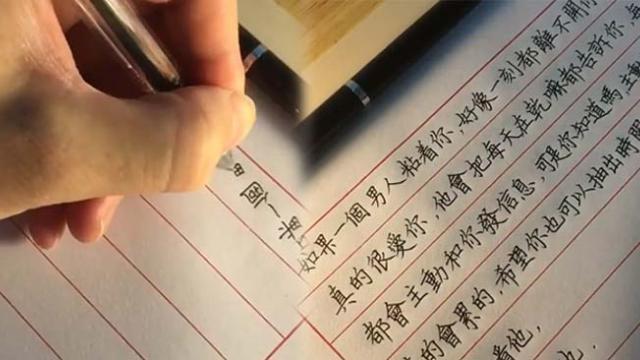 當一個
如果一個男人粘着你,好像一刻都離不開
真的很愛你,他會把每天在乾嘛都告訴你,
都會主動和你發信息,可是你知道馬,主
的會累的,希望你也可以抽出時間
他,